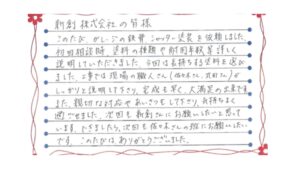 新創株式会社の皆様
このたび、ガレージの鉄骨、シャッター塗装を依頼しました。
初回相談時、塗料の種類や耐用年数等詳しく
説明していただきました。今回は長持ちする塗料を選び
ました。工事では現場の職人さん(佐々木さん、 さん)が
しっかりと説明して下さり、完成も早く、大満足の出来です。
また、親切な対応やあいさつもして下さり、気持ちよく
過ごせました。次回も新創さんにお願いしたいと思って
います。できましたら、次回も佐々木さんの班にお願いしたい
です。このたびはありがとうございました。